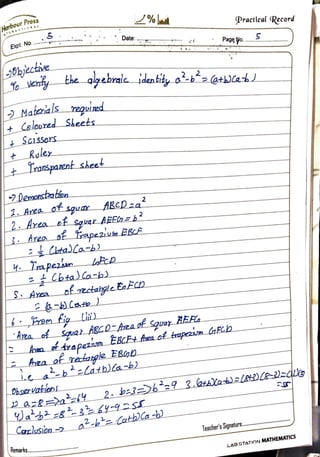 Harbour Press
INTERNATIONAL
Practical Record
Expt. No. 5 Date: Page No. 5
→Objective
To verify the algebraic identity a²-b² = (a+b)(a-b)
→ Materials required
+ Coloured Sheets
+ Scissors
+ Ruler
+ Transparent sheet
→ Demonstration
1. Area of squar ABCD = a²
2. Area of squar AEFG = b²
3. Area of Trapezium EBCF
= ½ (b+a)(a-b)
4. Trapezium GFCD
= ½ (b+a)(a-b)
5. Area of rectangle
= (a-b)(a+b)
6. From fig (iii)
Area of squar ABCD - Area of squar AEFG
= Area of trapezium EBCF + Area of trapezium GFCD
= Area of rectangle
i.e a²-b² = (a+b)(a-b)
Observations
1) a=8 ⇒ a²=64 2. b=3 ⇒ b²=9 3. (a+b)(a-b) = (8+3)(8-3) = (11)(5)
= 55
4) a²-b² = 8²-3² = 64-9 = 55
Conclusion → a²-b² = (a+b)(a-b)
Teacher's Signature
Remarks
LAB STATION MATHEMATICS